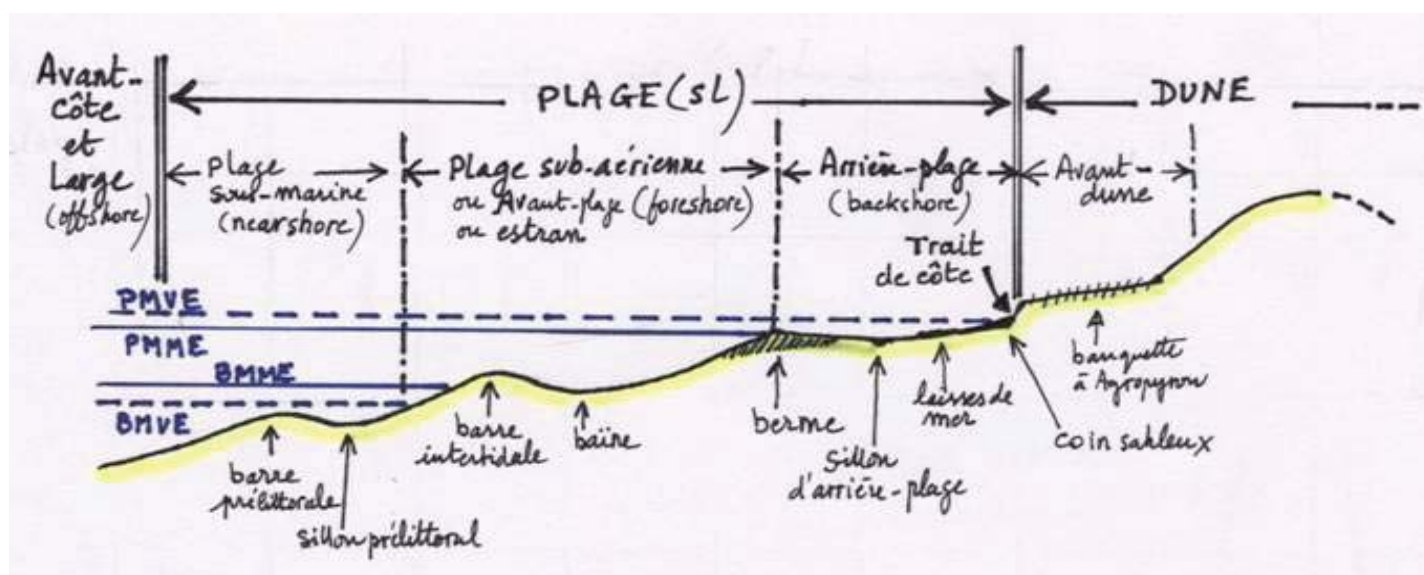 Avant-
côte
et
Large
(offshore)
PLAGE (sL)
DUNE
Plage
sous-marine
(nearshore)
Plage sub-aérienne
ou Avant-plage (foreshore)
ou estran
Arrière-plage
(backshore)
Avant-
dune
Trait
de côte
PMVE
PMME
BMME
BMVE
barre
prélittorale
sillon prélittoral
barre
intertidale
baïne
berme
sillon
d'arrière-plage
laisses de
mer
coin sableux
banquette
à Agropyron